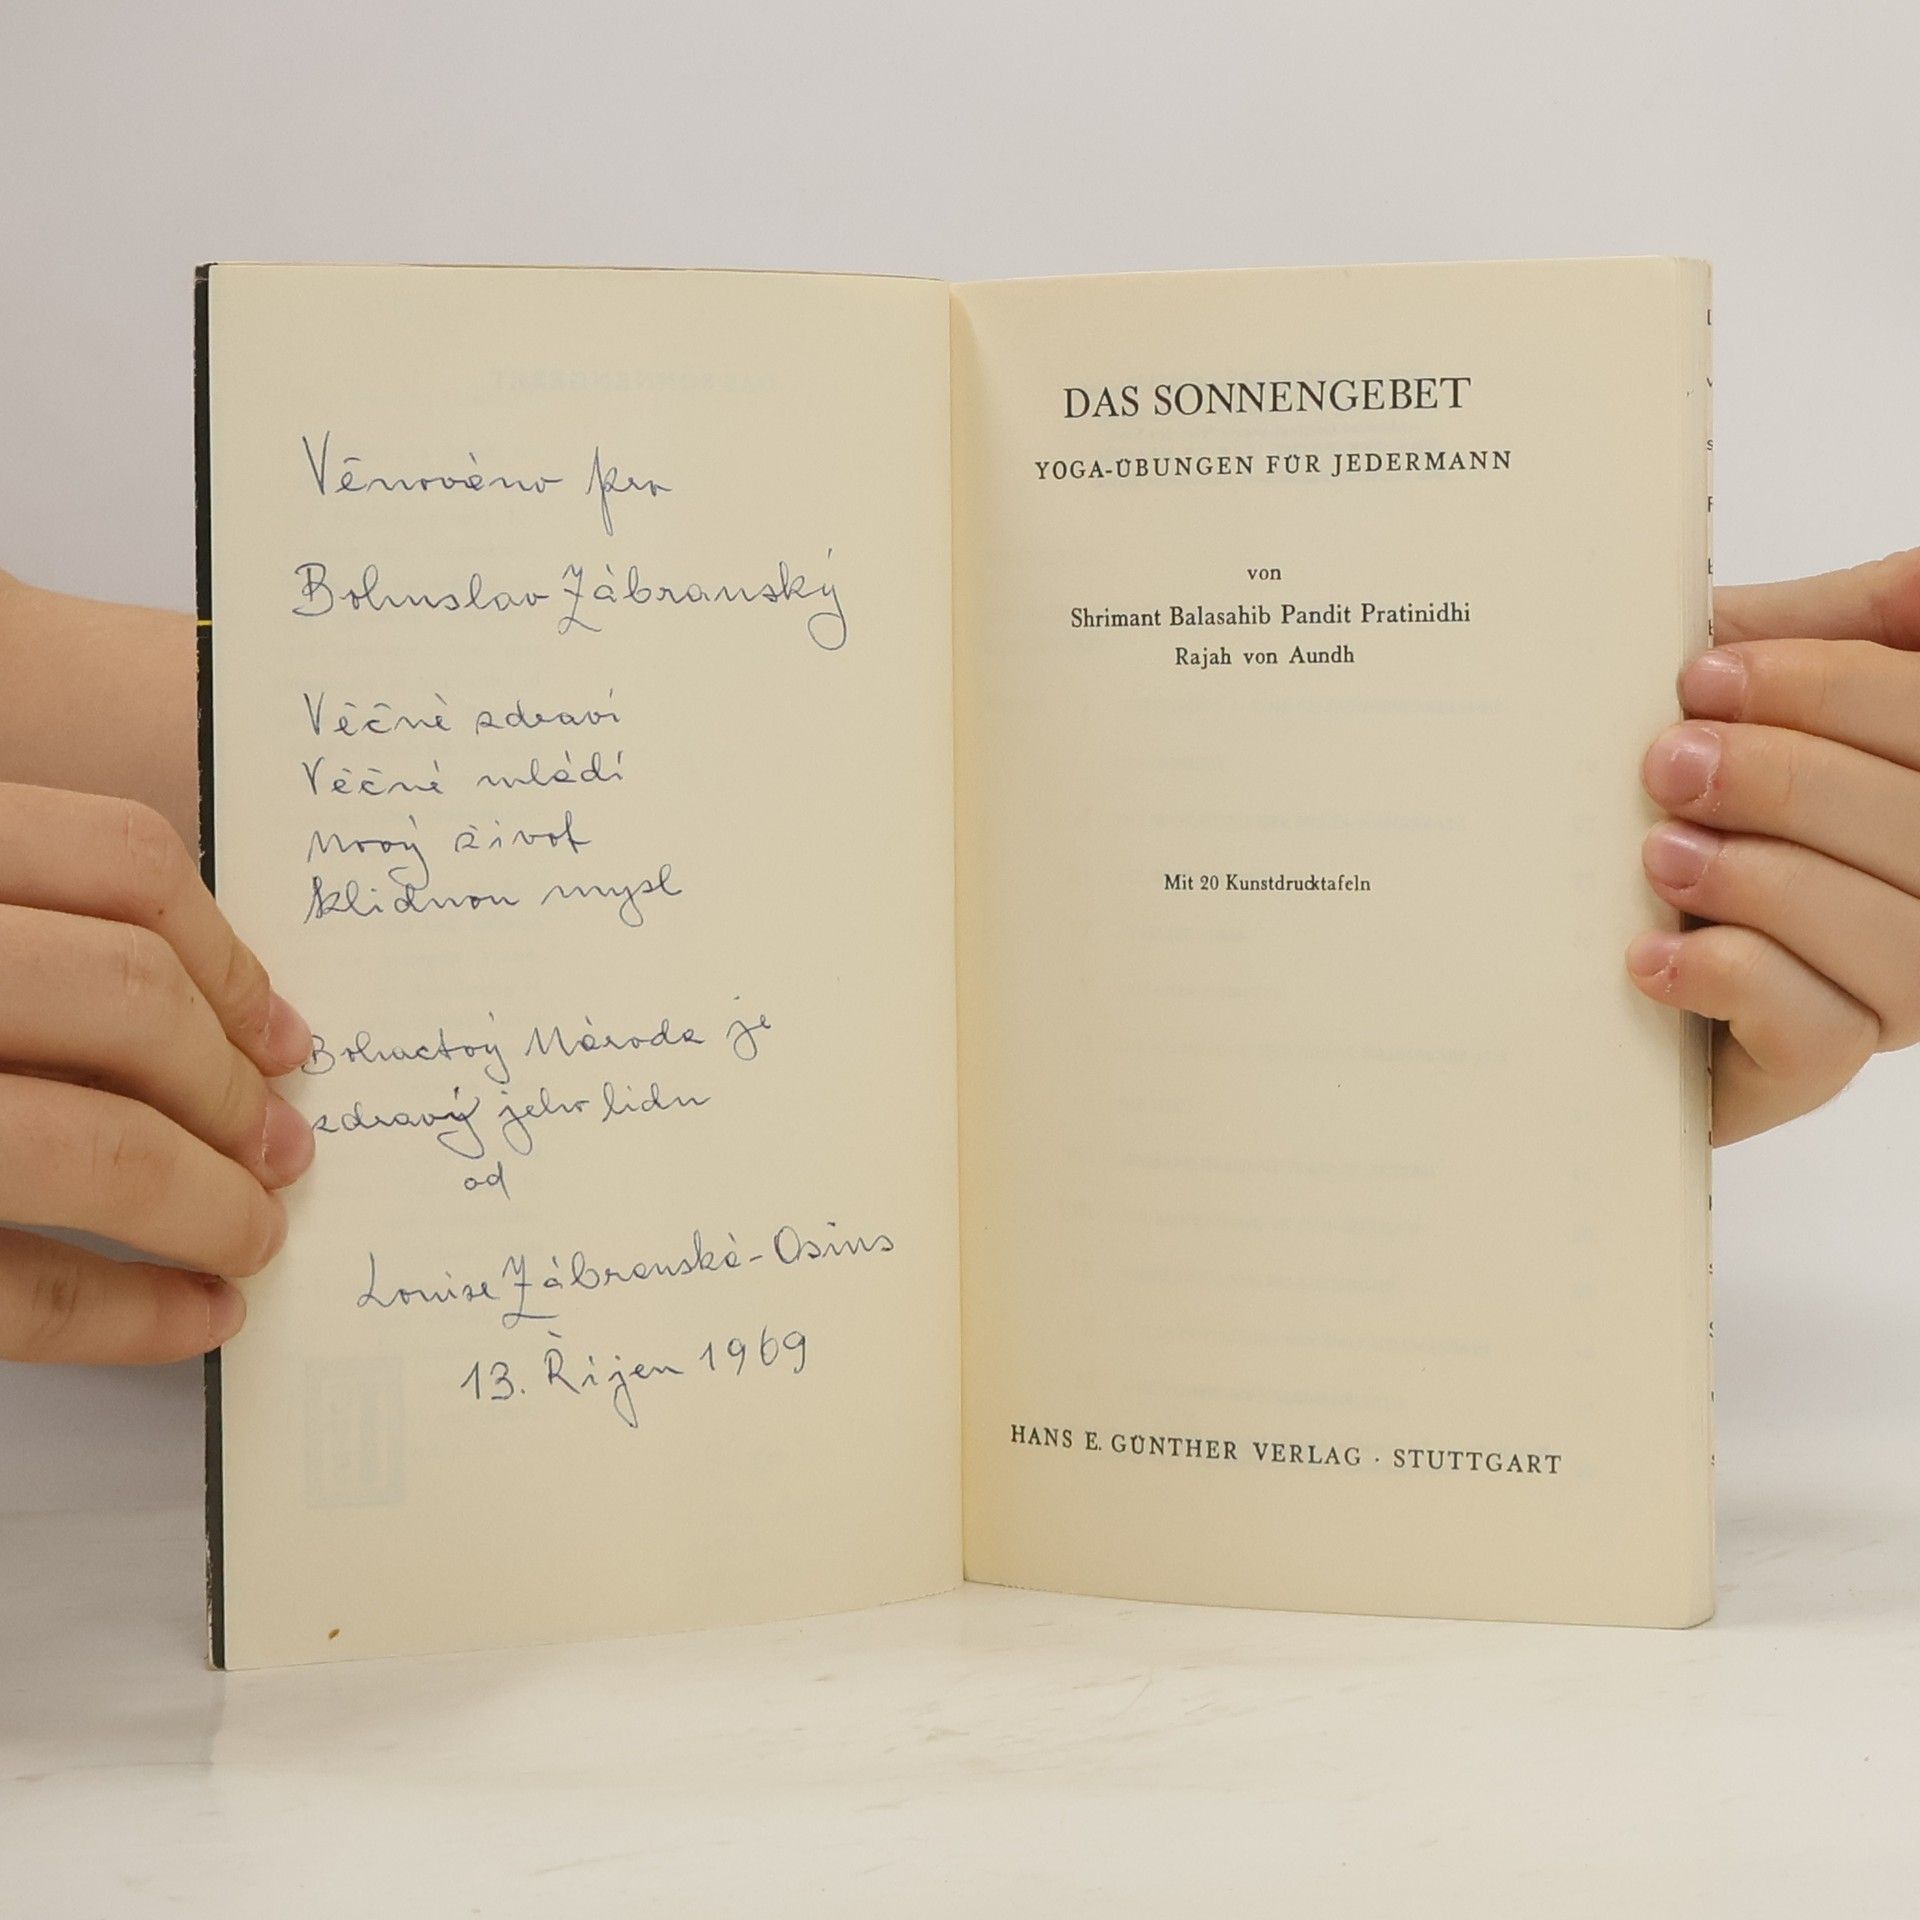 Věnováno pro
Bohuslav Zábranský
Věčné zdraví
Věčné mládí
Nový život
klidnou mysl
Bohactvý Národa je
zdravý jeho lidu
od
Louise Zábranská-Osins
13. Říjen 1969
DAS SONNENGEBET
YOGA-ÜBUNGEN FÜR JEDERMANN
von
Shrimant Balasahib Pandit Pratinidhi
Rajah von Aundh
Mit 20 Kunstdrucktafeln
HANS E. GÜNTHER VERLAG · STUTTGART